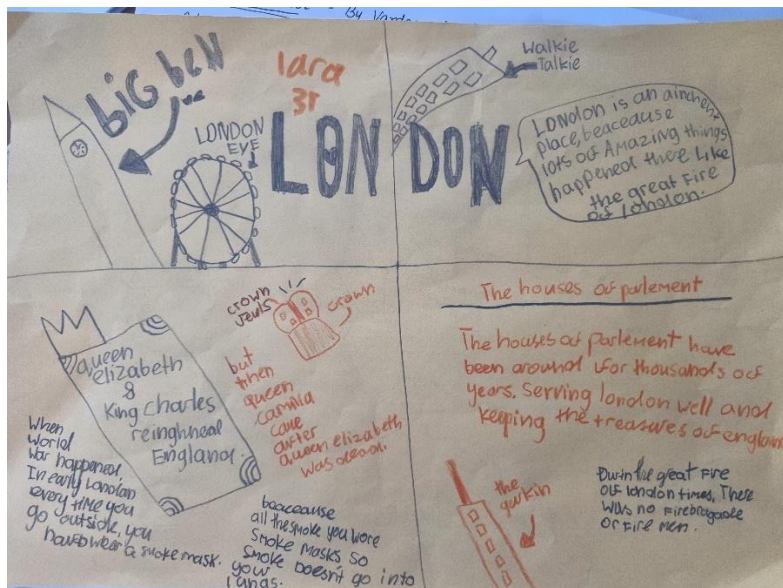 By
BIG BEN
lara
3T
LONDON
EYE
LONDON
Walkie
Talkie
LONdon is an ainchent
place, beaceause
lots of Amazing things
happened there like
the great Fire
of london.
queen
elizabeth
&
King Charles
England.
crown
Jewls
crown
but
then
queen
camilla
came
after
queen elizabeth
was dead.
When
World
War happened
In early London
every time you
go outside, you
have to wear a smoke mask.
beaceause
all the smoke you wore
smoke masks so
smoke doesn't go into
your
lungs.
The houses of parlement
The houses of parlement have
been around for thousands of
years. Serving london well and
keeping the treasures of england
the
gurkin
Durin the great Fire
of london times, There
was no
or Fire men.